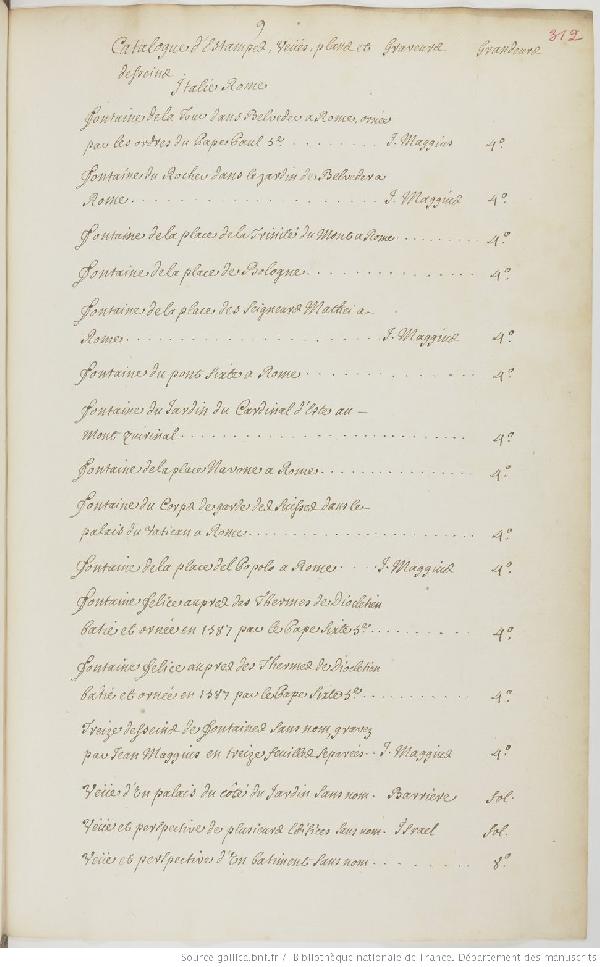 9
312
Catalogue d'Estampes, Veües, plans et Graveurs Grandeurs
desseins
Italie Rome
Fontaine de la Tour dans Belveder a Rome, ornée
par les ordres du Pape Paul 5e . . . . . . . . J. Maggius 4o
Fontaine du Rocher dans le jardin de Belveder a
Rome . . . . . . . . J. Maggius 4o.
Fontaine de la place de la Trinité du Mont a Rome . . . . . . . . 4o.
Fontaine de la place de Bologne . . . . . . . . 4o.
Fontaine de la place des Seigneurs Mathei a
Rome . . . . . . . . J. Maggius 4o.
Fontaine du pont Sixte a Rome . . . . . . . . 4o.
Fontaine du Jardin du Cardinal d'Este au
Mont quirinal . . . . . . . . 4o.
Fontaine de la place Navone a Rome . . . . . . . . 4o.
Fontaine du Corps de garde des Suisses dans le
palais du Vatican a Rome . . . . . . . . 4o.
Fontaine de la place del Popolo a Rome . . . . J. Maggius 4o.
Fontaine felice aupres des Thermes de Diocletien
batie et ornée en 1587 par le Pape Sixte 5e . . . . . . . . 4o.
Fontaine felice aupres des Thermes de Diocletien
batie et ornée en 1587 par le Pape Sixte 5e . . . . . . . . 4o.
Treize desseins de fontaines sans nom, gravez
par Jean Maggius en treize feuilles separées . . J. Maggius 4o.
Veüe d'Un palais du côté du Jardin sans nom . Barriere fol.
Veüe et perspective de plusieurs Edifices sans nom . Israel fol.
Veüe et perspective d'Un batiment sans nom . . . . . . . . 8o.
Source gallica.bnf.fr / Bibliothèque nationale de France. Département des manuscrits